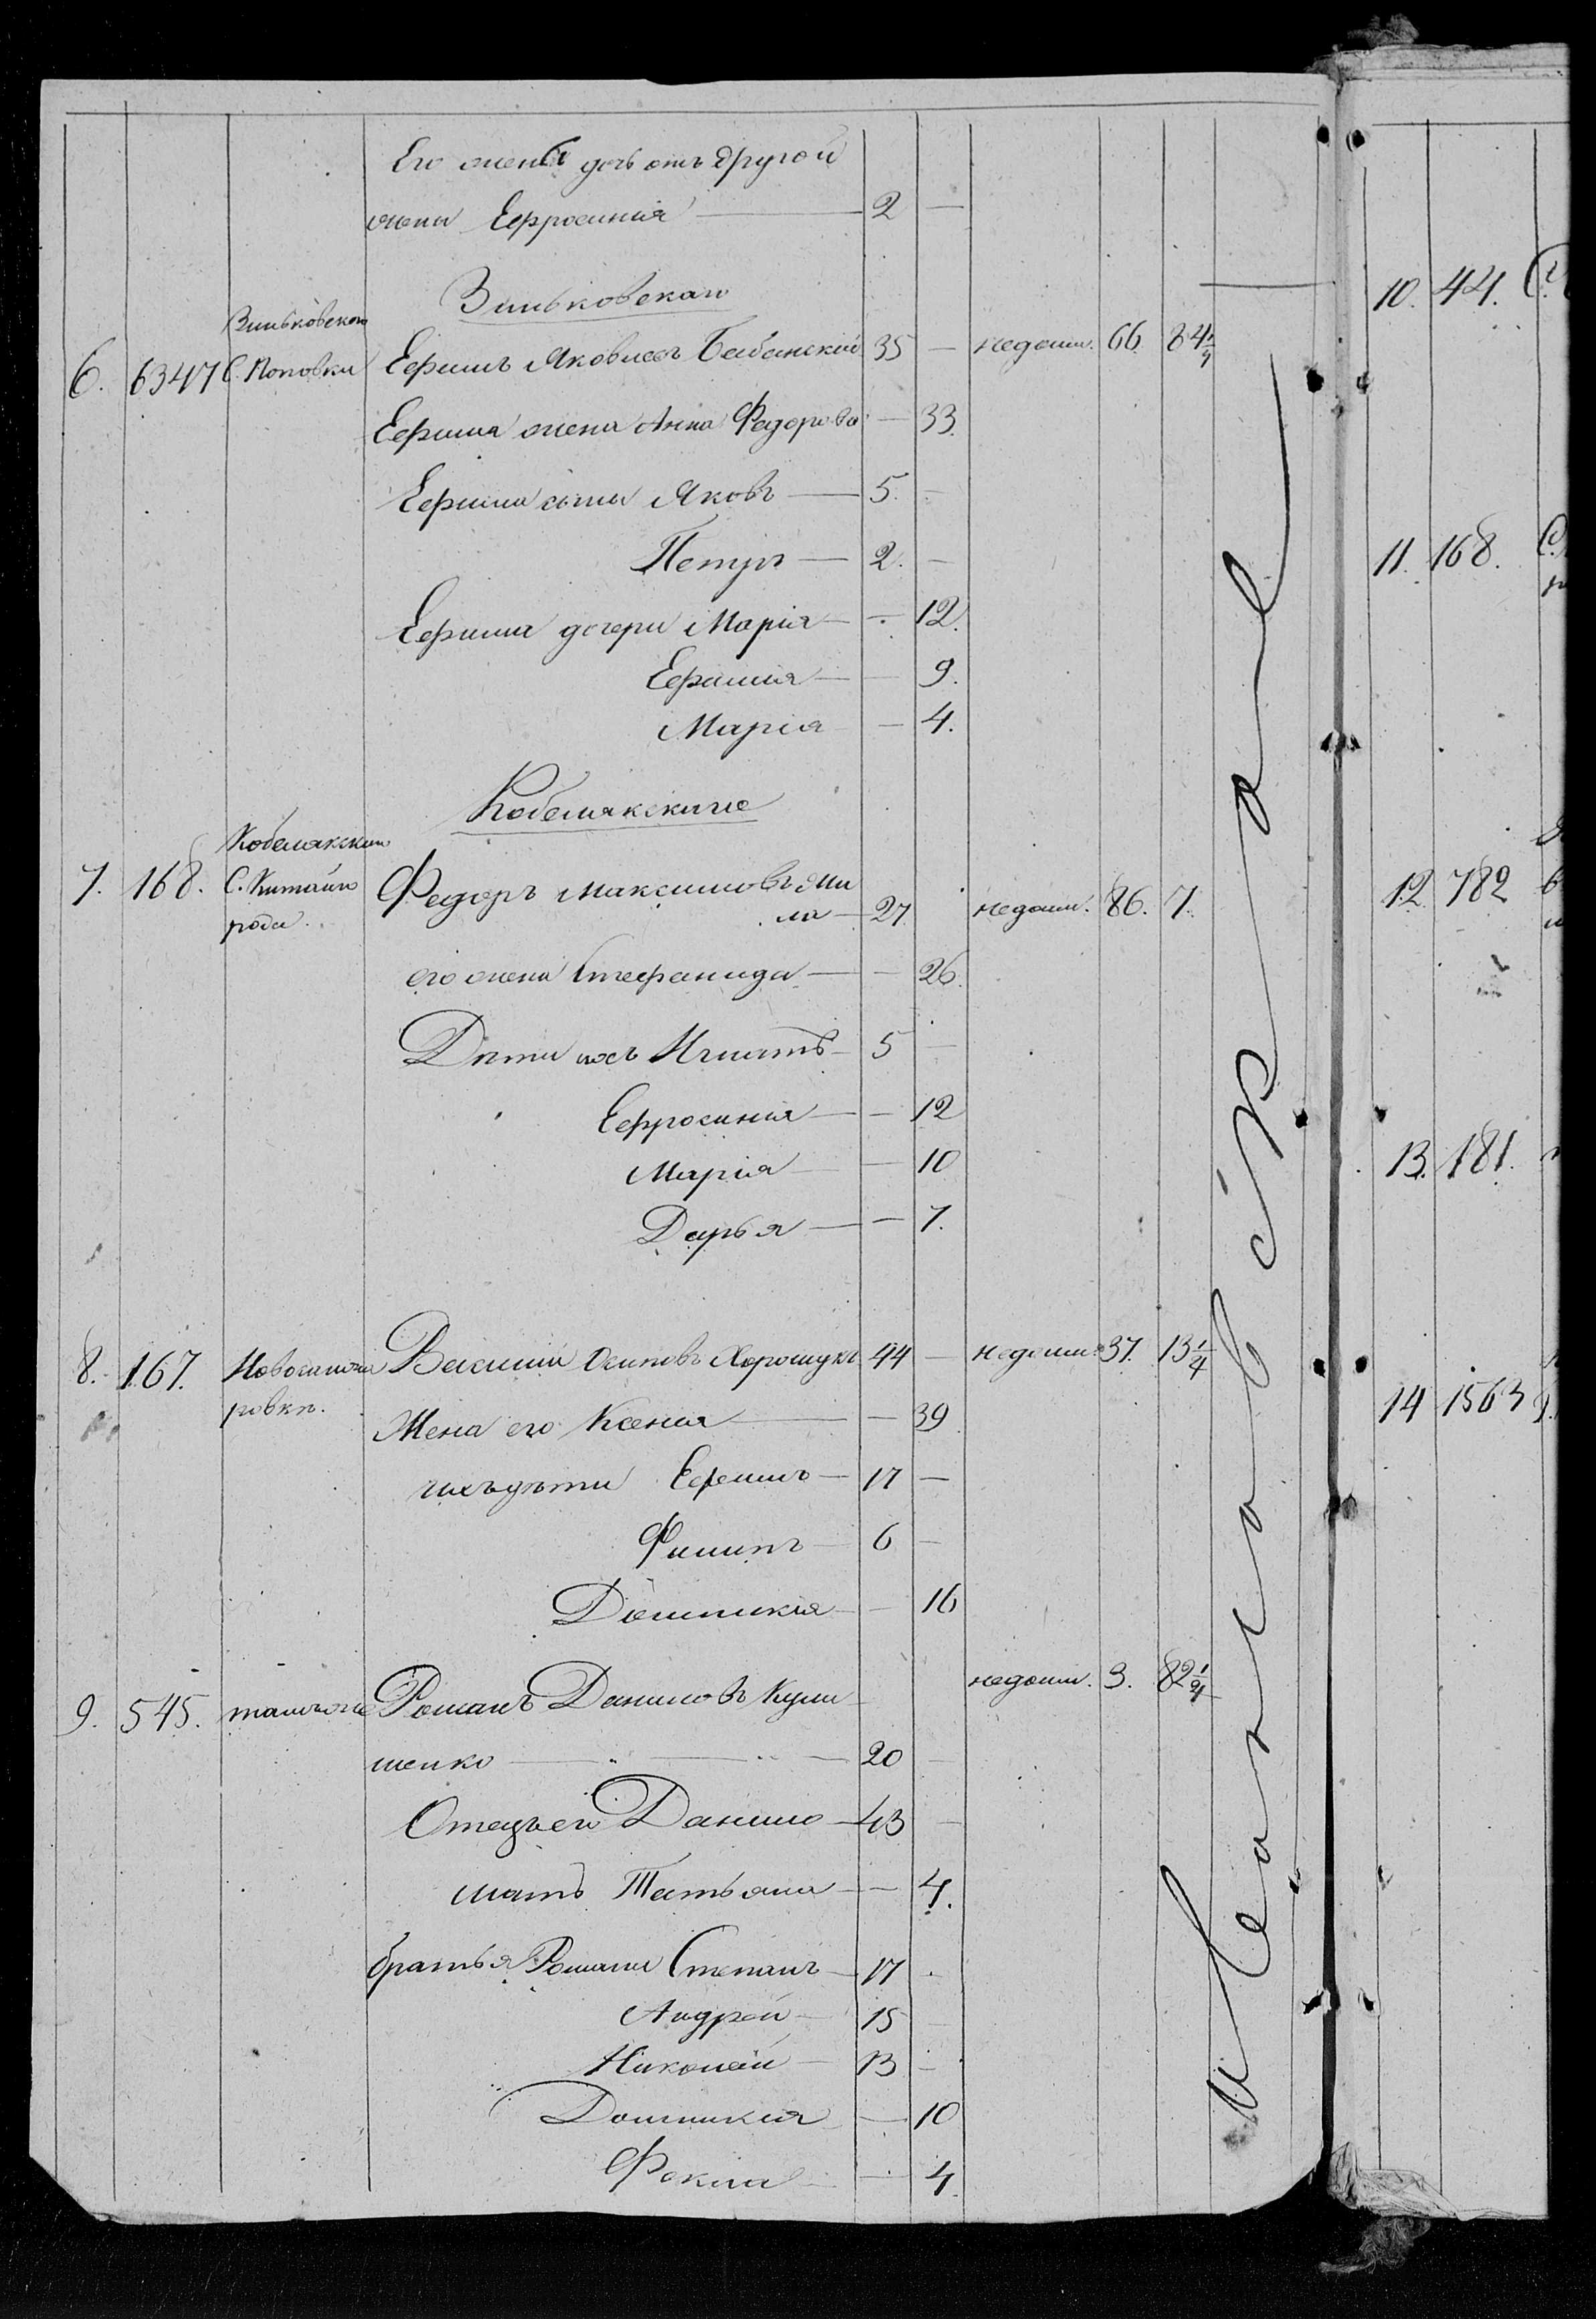 Его жены дочь отъ другой
жены Ефросинія — 2 —
Зиньковскаго
6. 6347 Зиньковскаго С. Поповки Ефимъ Яковлевъ Бабанскій 35 — недоим. 66. 84 1/4
Ефима жена Анна Федорова — 33.
Ефима сыны Яковъ — 5. —
Петръ — 2. —
Ефима дочери Марія — 12.
Ефимія — 9.
Марія — 4.
Кобелякскіе
7. 168. Кобелякскаго С. Китайго
рода. Федоръ Максимовъ
27 недоим. 86. 7.
его жена Стефанида — 26.
Дѣти ихъ Игнатъ 5 —
Ефросинія — 12
Марія — 10
Дарья — 7.
8. 167. Новосанжа
ровки. Василій Осиповъ Хорошунъ 44 — недоим. 37. 13 1/4
Жена его Ксенія — 39
ихъ дѣти Ефимъ 17 —
Филипъ 6 —
Домникія — 16
9. 545. тамъже Романъ Даниловъ недоим. 3. 82 1/4
шенко 20 —
Отецъ его Данило 43 —
мать Татьяна — 4.
братья Романа Степанъ 17 —
Андрей 15 —
Николай 13 —
Домникія — 10
Фекла — 4.
10. 44.
11. 168.
12 782
13. 181.
14 1563